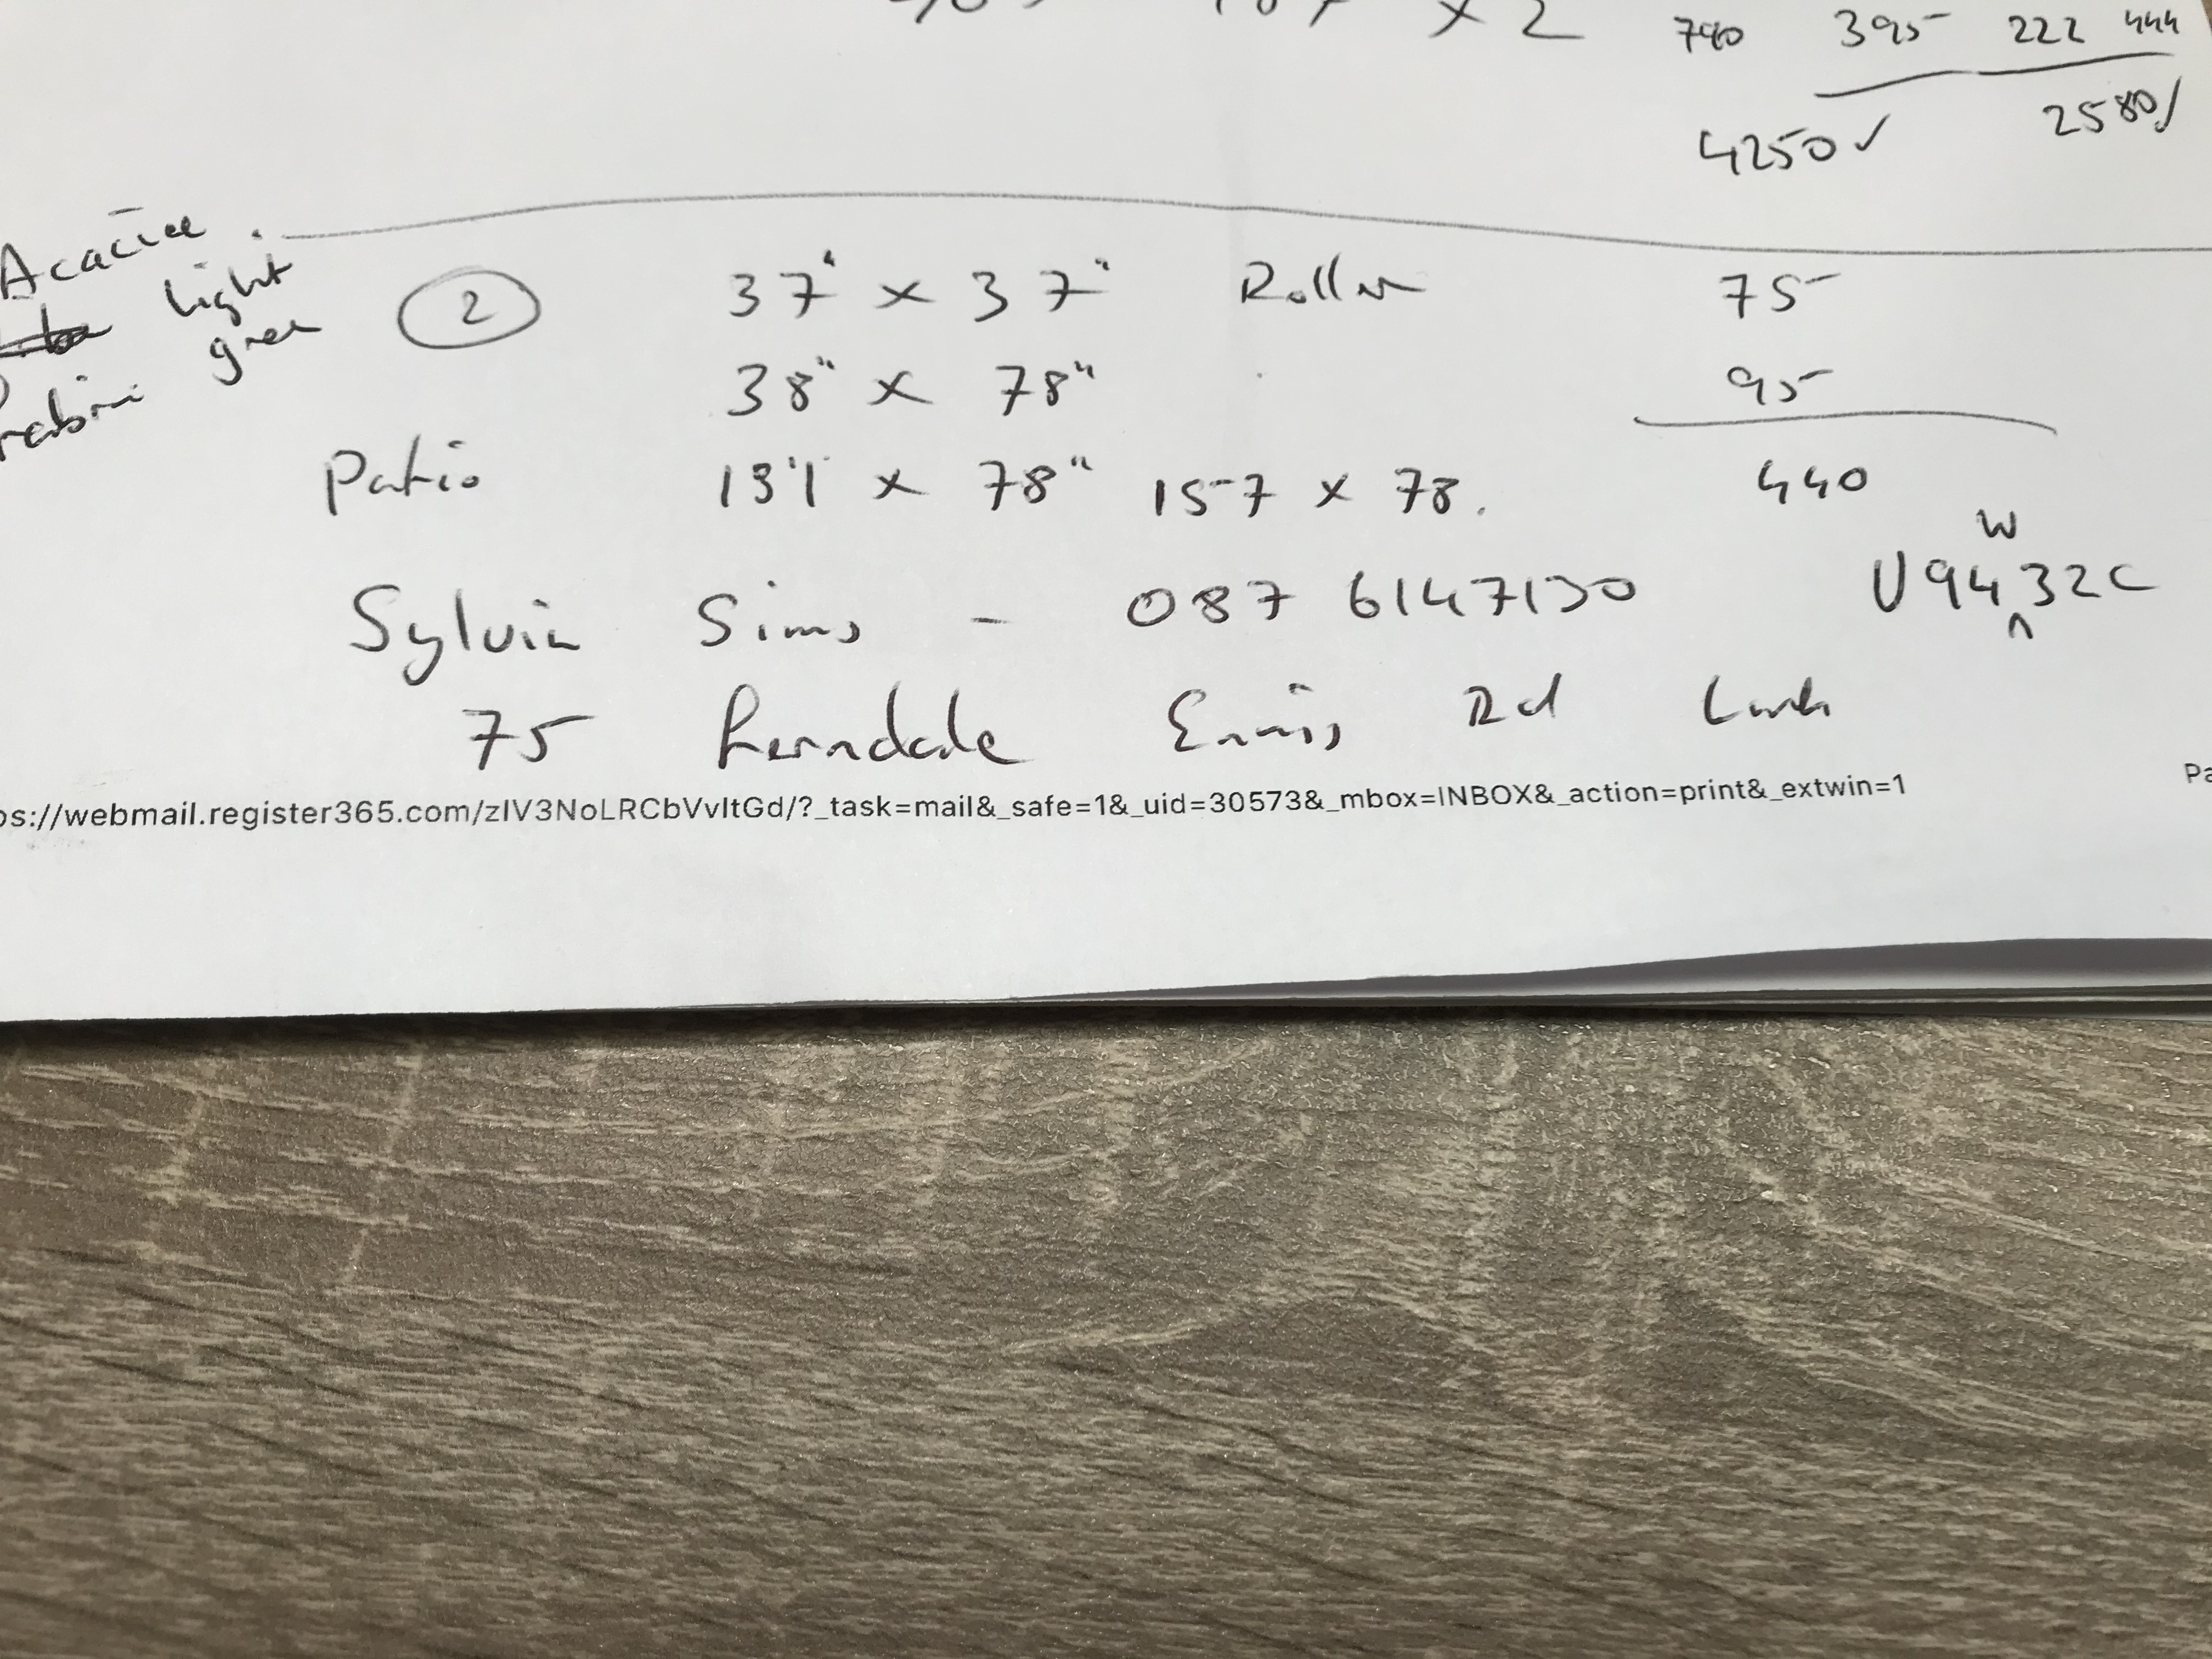 x 2 790 395 222 444
4250 ✓ 2580/
Acacia
light
green
2 37" x 37" Roller 75
38" x 78" 95
Patio 13'1 x 78" 157 x 78. 440
Sylvia Sims - 087 6147130 V94 W32C
75 Ferndale Ennis Rd
ps://webmail.register365.com/zIV3NoLRCbVvItGd/?_task=mail&_safe=1&_uid=30573&_mbox=INBOX&_action=print&_extwin=1 Pa